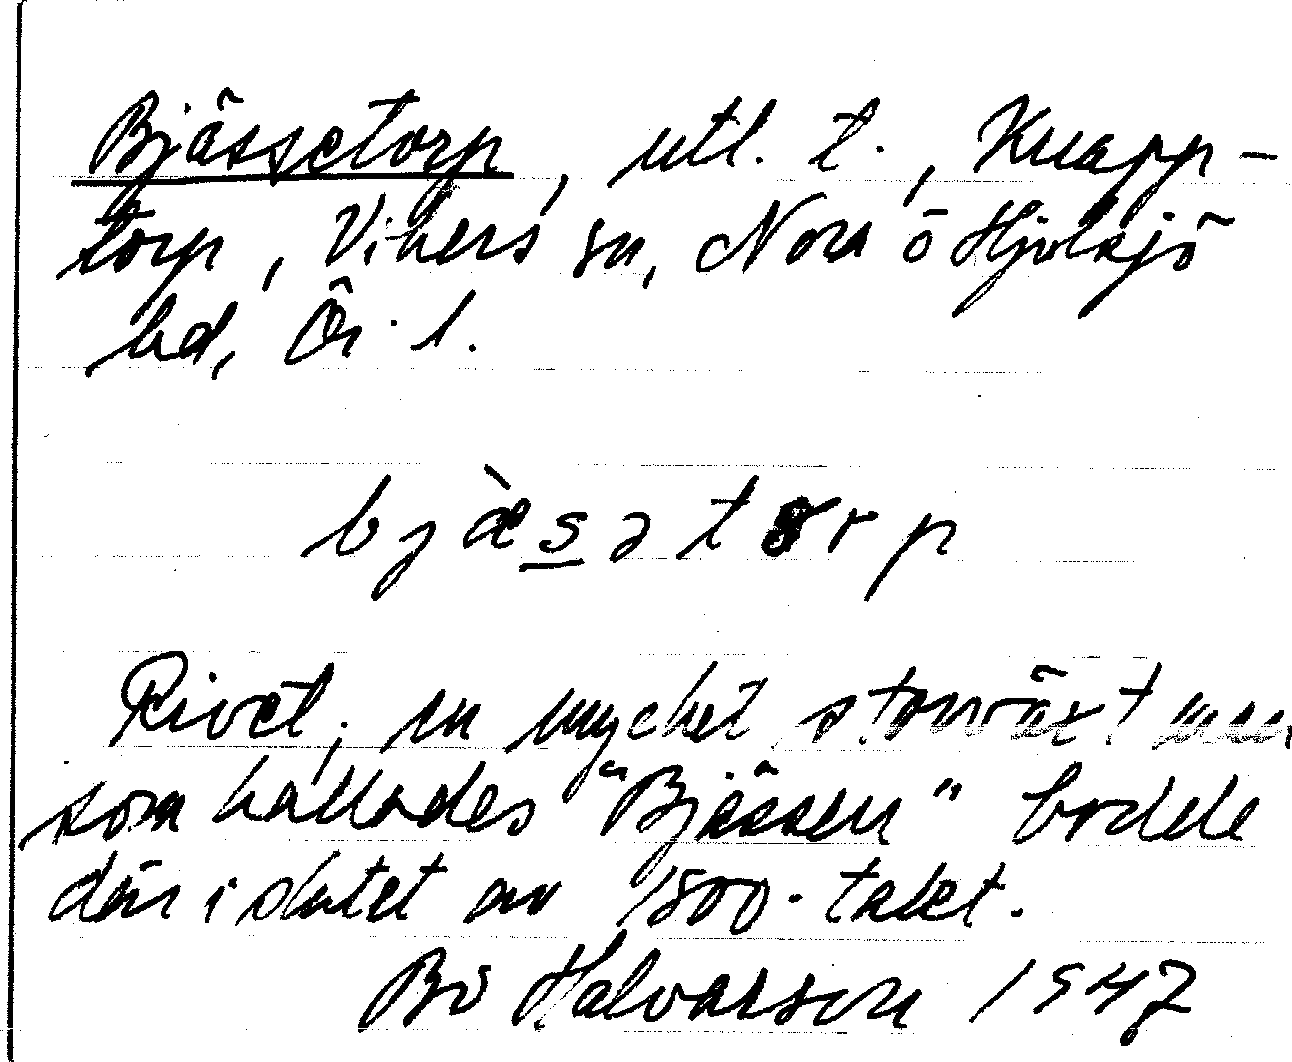 Bjässetorp, utl. t., Knapp-
torp, Vikers sn, Nora o Hjulsjö
bd, Ör. l.
bjæ̀sətorp
Rivet; en mycket storväxt man
som kallades "Bjässen" bodde
där i slutet av 1800-talet.
Bo Halvarson 1947